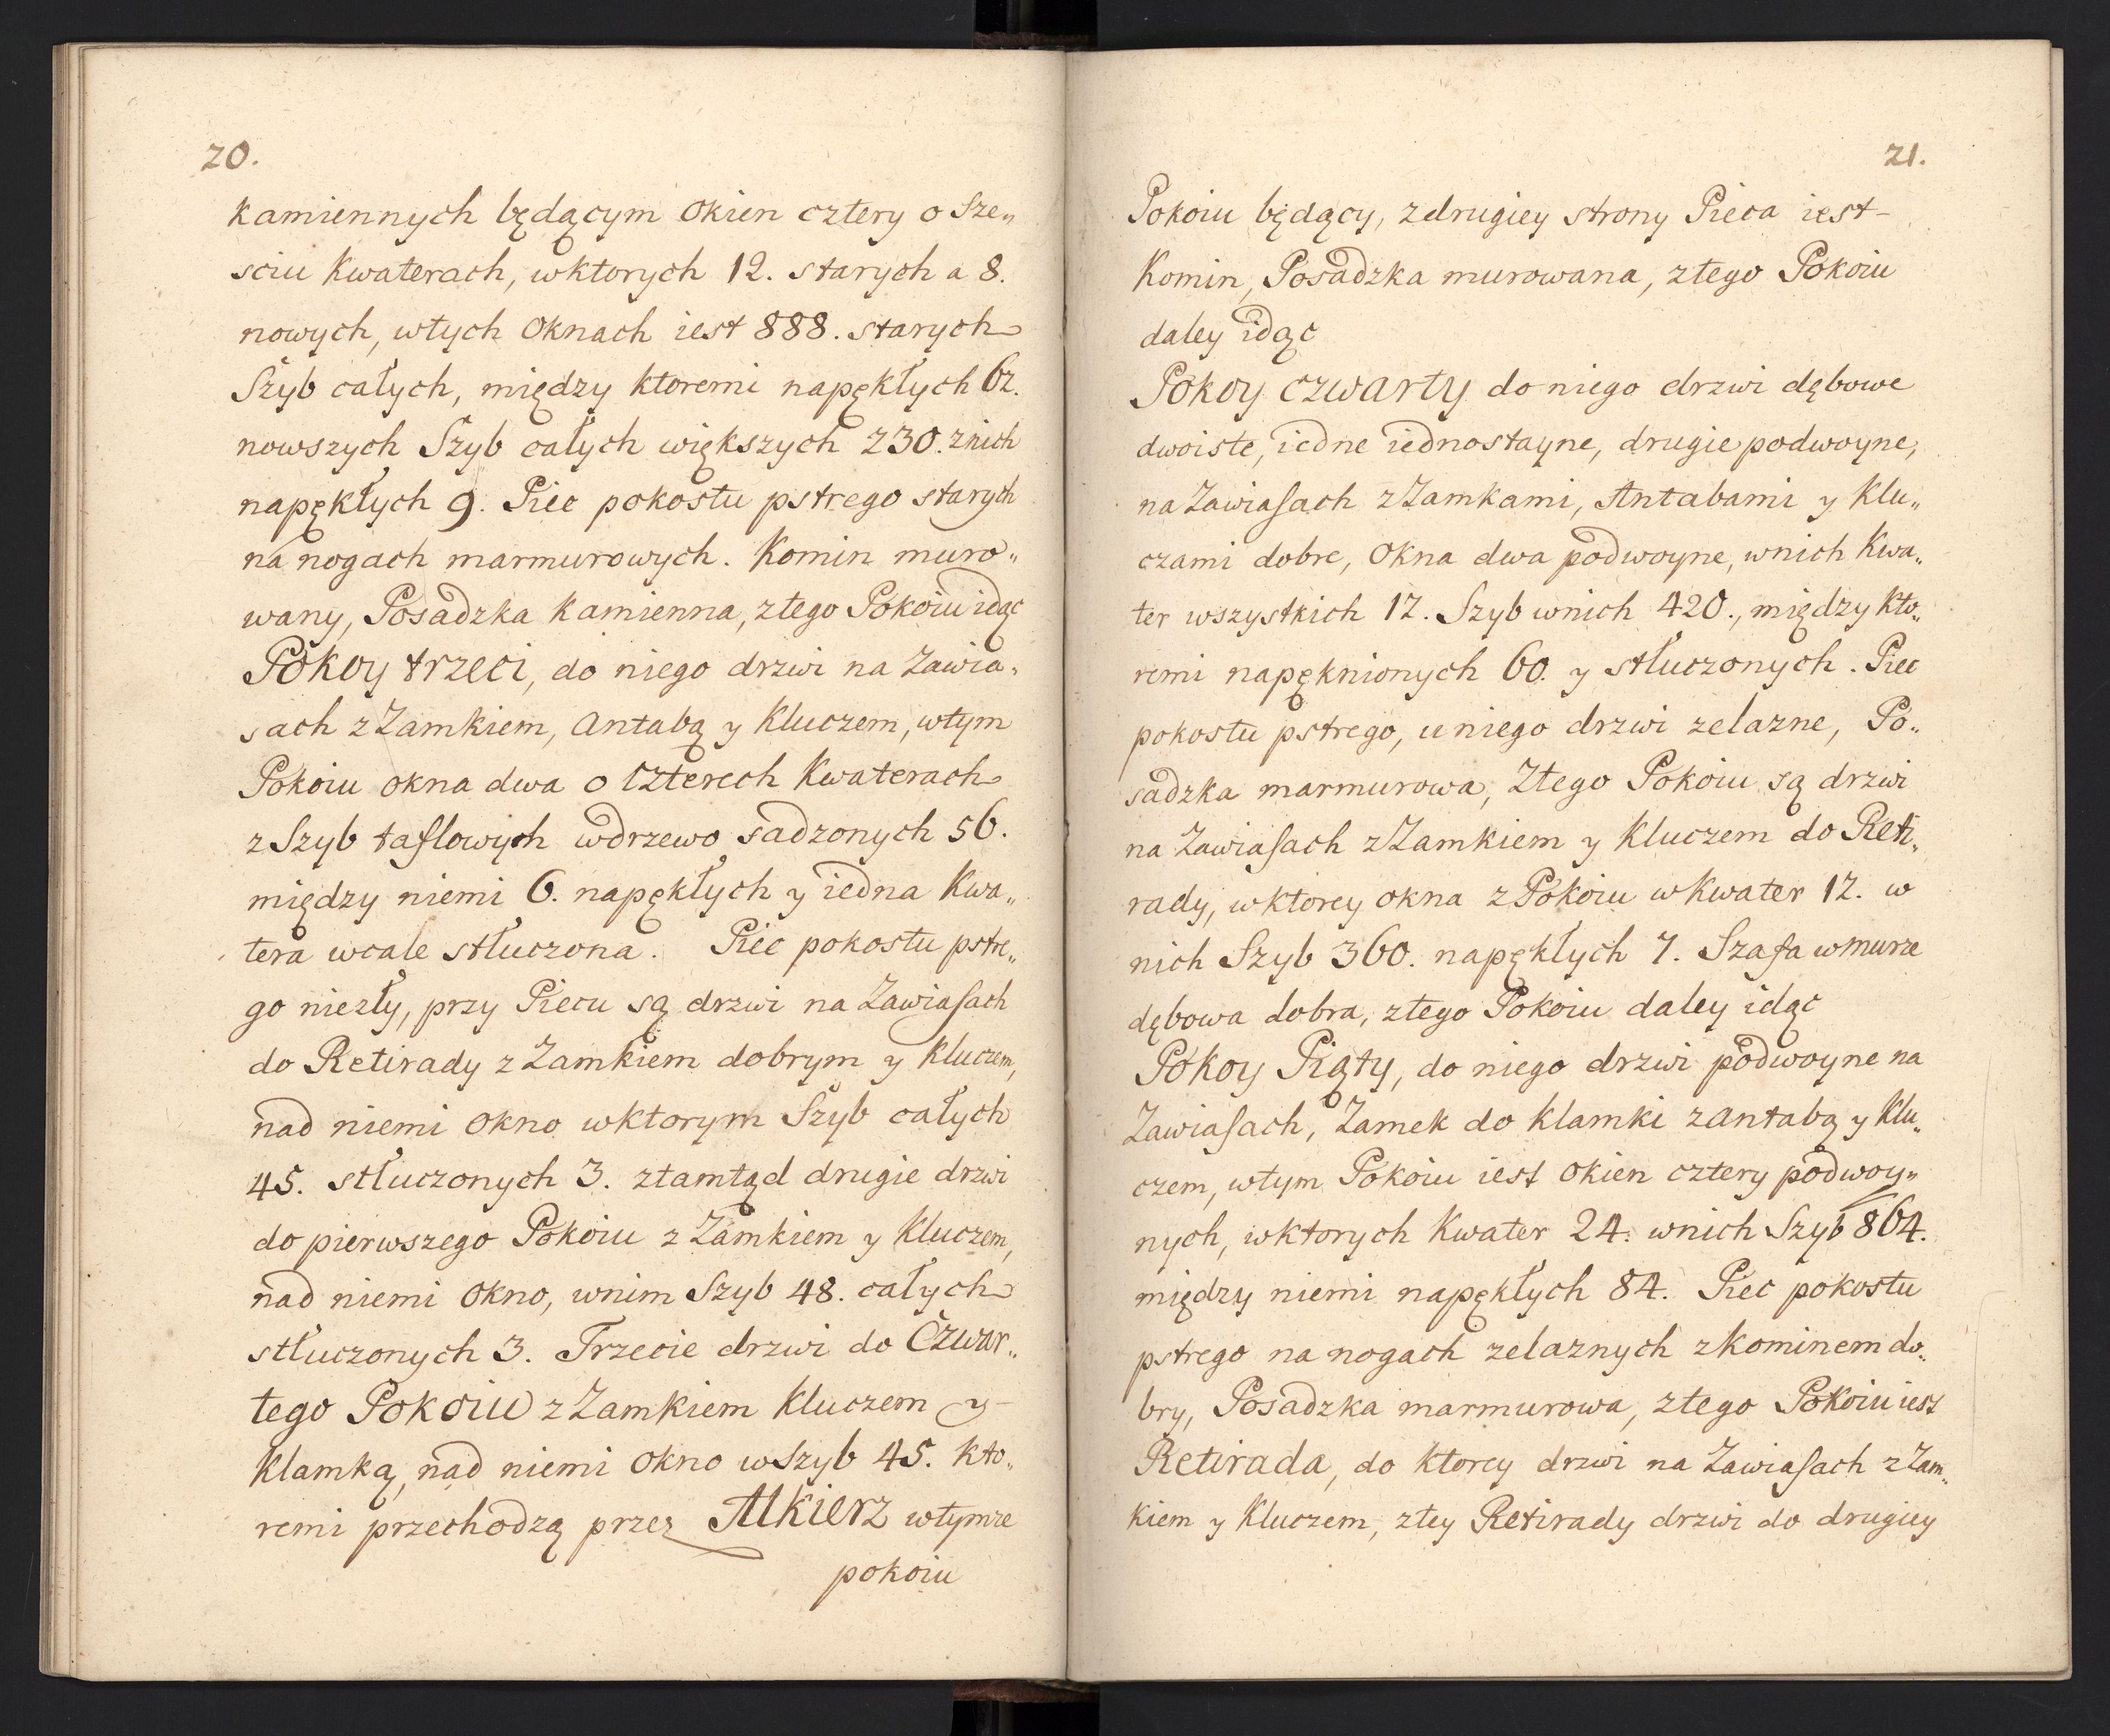 20.
kamiennych będącym okien cztery o Sze„
sciu kwaterach, wktorych 12. starych a 8.
nowych, wtych oknach iest 888. starych
Szyb całych, między ktoremi napękłych 62.
nowszych Szyb całych większych 230. znich
napękłych 9. Piec pokostu pstrego starych
na nogach marmurowych. Komin muro„
wany, Posadzka kamienna, ztego Pokoiu idąc
Pokoy trzeci, do niego drzwi na Zawia„
sach z Zamkiem, antabą y Kluczem, wtym
Pokoiu okna dwa o czterech Kwaterach
z Szyb taflowych wdrzewo sadzonych 56.
między niemi 6. napękłych y iedna Kwa„
tera wcale stłuczona. Piec pokostu pstre„
go niezły, przy Piecu są drzwi na Zawiasach
do Retirady z Zamkiem dobrym y kluczem,
nad niemi okno wktorym Szyb całych
45. stłuczonych 3. ztamtąd drugie drzwi
do pierwszego Pokoiu z Zamkiem y Kluczem,
nad niemi okno, wnim Szyb 48. całych
stłuczonych 3. Trzecie drzwi do Czwar„
tego Pokoiu z Zamkiem Kluczem y
Klamką, nad niemi okno wSzyb 45. kto„
remi przechodzą przez Alkierz wtymze
pokoiu
21.
Pokoiu będący, zdrugiey strony Pieca iest
Komin, Posadzka murowana, ztego Pokoiu
daley idąc
Pokoy czwarty do niego drzwi dębowe
dwoiste, iedne iednostayne, drugie podwoyne,
na Zawiasach z Zamkami, Antabami y Klu„
czami dobre, Okna dwa podwoyne, wnich Kwa„
ter wszystkich 12. Szyb wnich 420., między kto„
remi napęknionych 60. y stłuczonych. Piec
pokostu pstrego, u niego drzwi zelazne, Po„
sadzka marmurowa, Ztego Pokoiu są drzwi
na Zawiasach z Zamkiem y Kluczem do Reti„
rady, wktorey okna z Pokoiu w Kwater 12. w
nich Szyb 360. napękłych 7. Szafa wmurze
dębowa dobra, ztego Pokoiu daley idąc
Pokoy Piąty, do niego drzwi podwoyne na
Zawiasach, Zamek do klamki zantabą y Klu„
czem, wtym Pokoiu iest okien cztery podwoy„
nych, wktorych Kwater 24. wnich Szyb 864.
między niemi napękłych 84. Piec pokostu
pstrego na nogach zelaznych zkominem do„
bry, Posadzka marmurowa, ztego Pokoiu iest
Retirada, do ktorey drzwi na Zawiasach z Zam„
kiem y Kluczem, ztey Retirady drzwi do drugiey